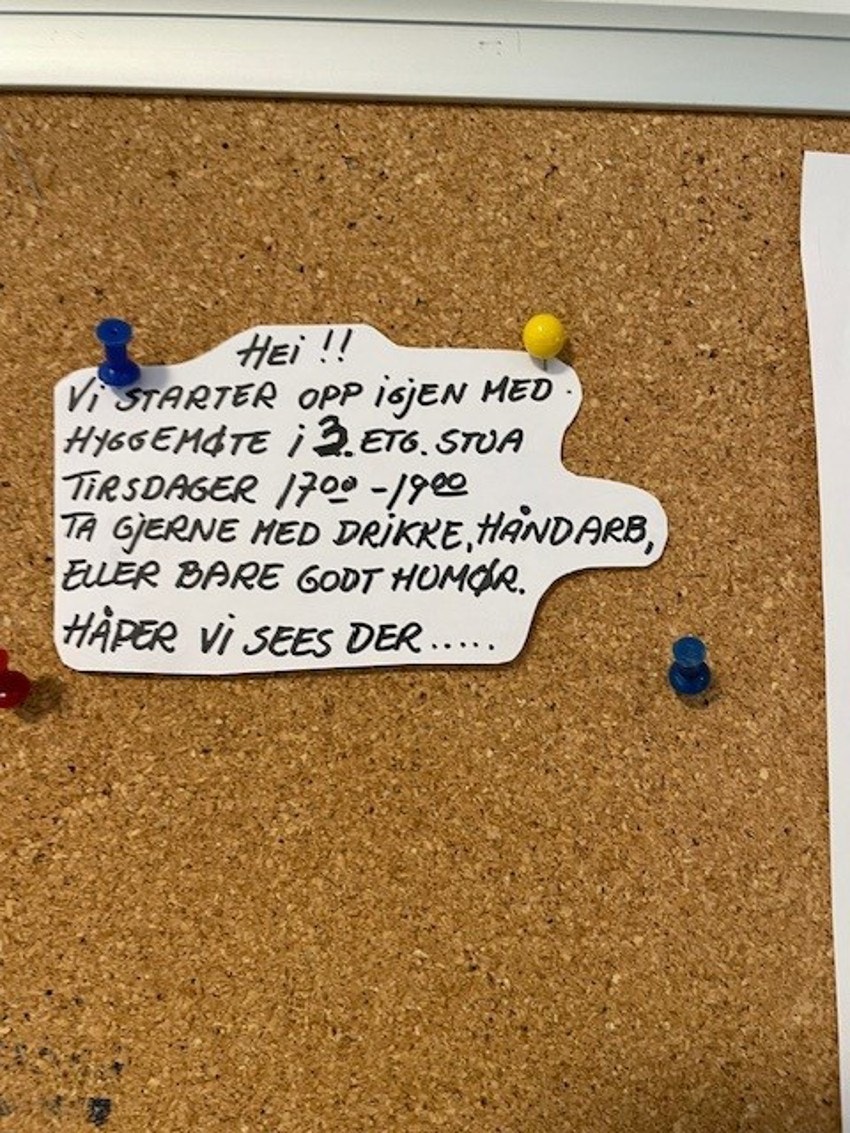 Hei !!
Vi STARTER OPP iGjEN MED
HYGGEMØTE i 3. ETG. STUA
TiRSDAGER 17⁰⁰ - 19⁰⁰
TA GjERNE MED DRiKKE, HÅNDARB,
ELLER BARE GODT HUMØR.
HÅPER Vi SEES DER.....